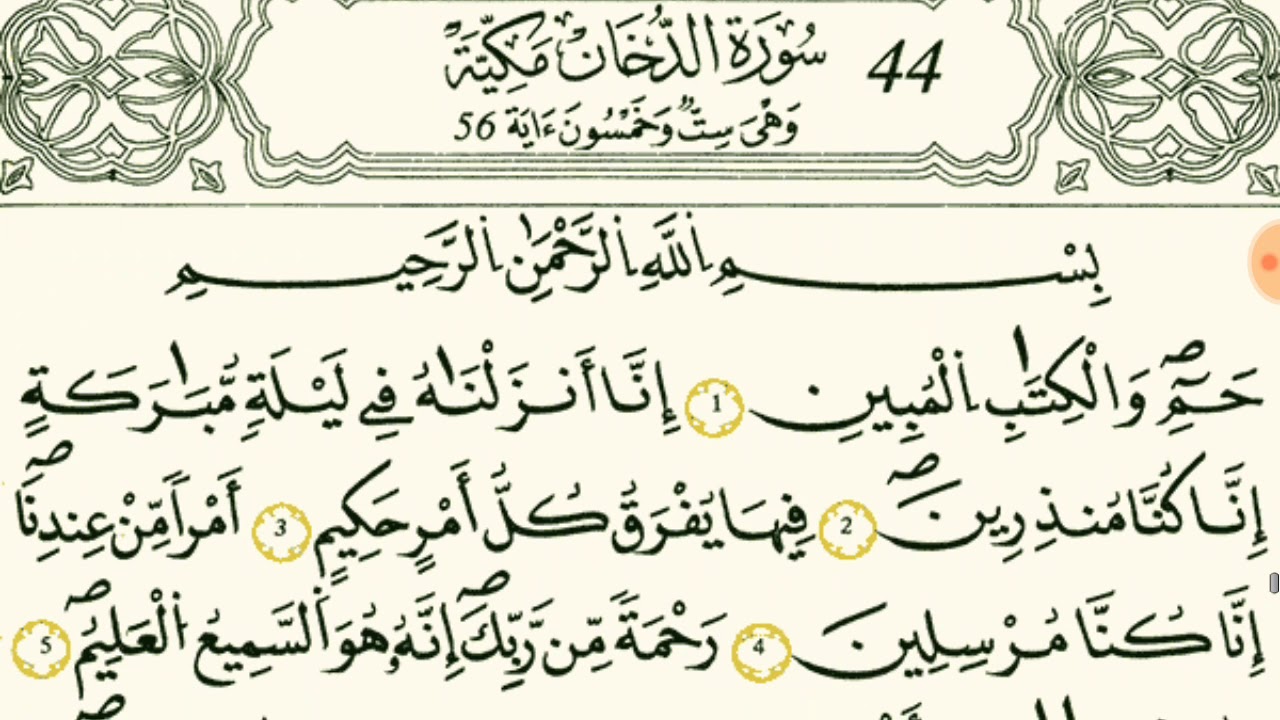 سُورَةُ الدُّخَانِ مَكِّيَّةٌ 44
وَهْيَ سِتٌّ وَخَمْسُونَ ءَايَةً 56
بِسْمِ اِ۬للَّهِ اِ۬لرَّحْمَٰنِ اِ۬لرَّحِيمِ
حَمِٓۖ وَالْكِتَٰبِ اِ۬لْمُبِينِ 1 إِنَّا أَنزَلْنَٰهُ فِے لَيْلَةٍ مُّبَٰرَكَةٍ
إِنَّا كُنَّا مُنذِرِينَۖ 2 فِيهَا يُفْرَقُ كُلُّ أَمْرٍ حَكِيمٍ 3 أَمْراً مِّنْ عِندِنَاۖ
إِنَّا كُنَّا مُرْسِلِينَ 4 رَحْمَةً مِّن رَّبِّكَۖ إِنَّهُۥ هُوَ اَ۬لسَّمِيعُ اُ۬لْعَلِيمُۖ 5